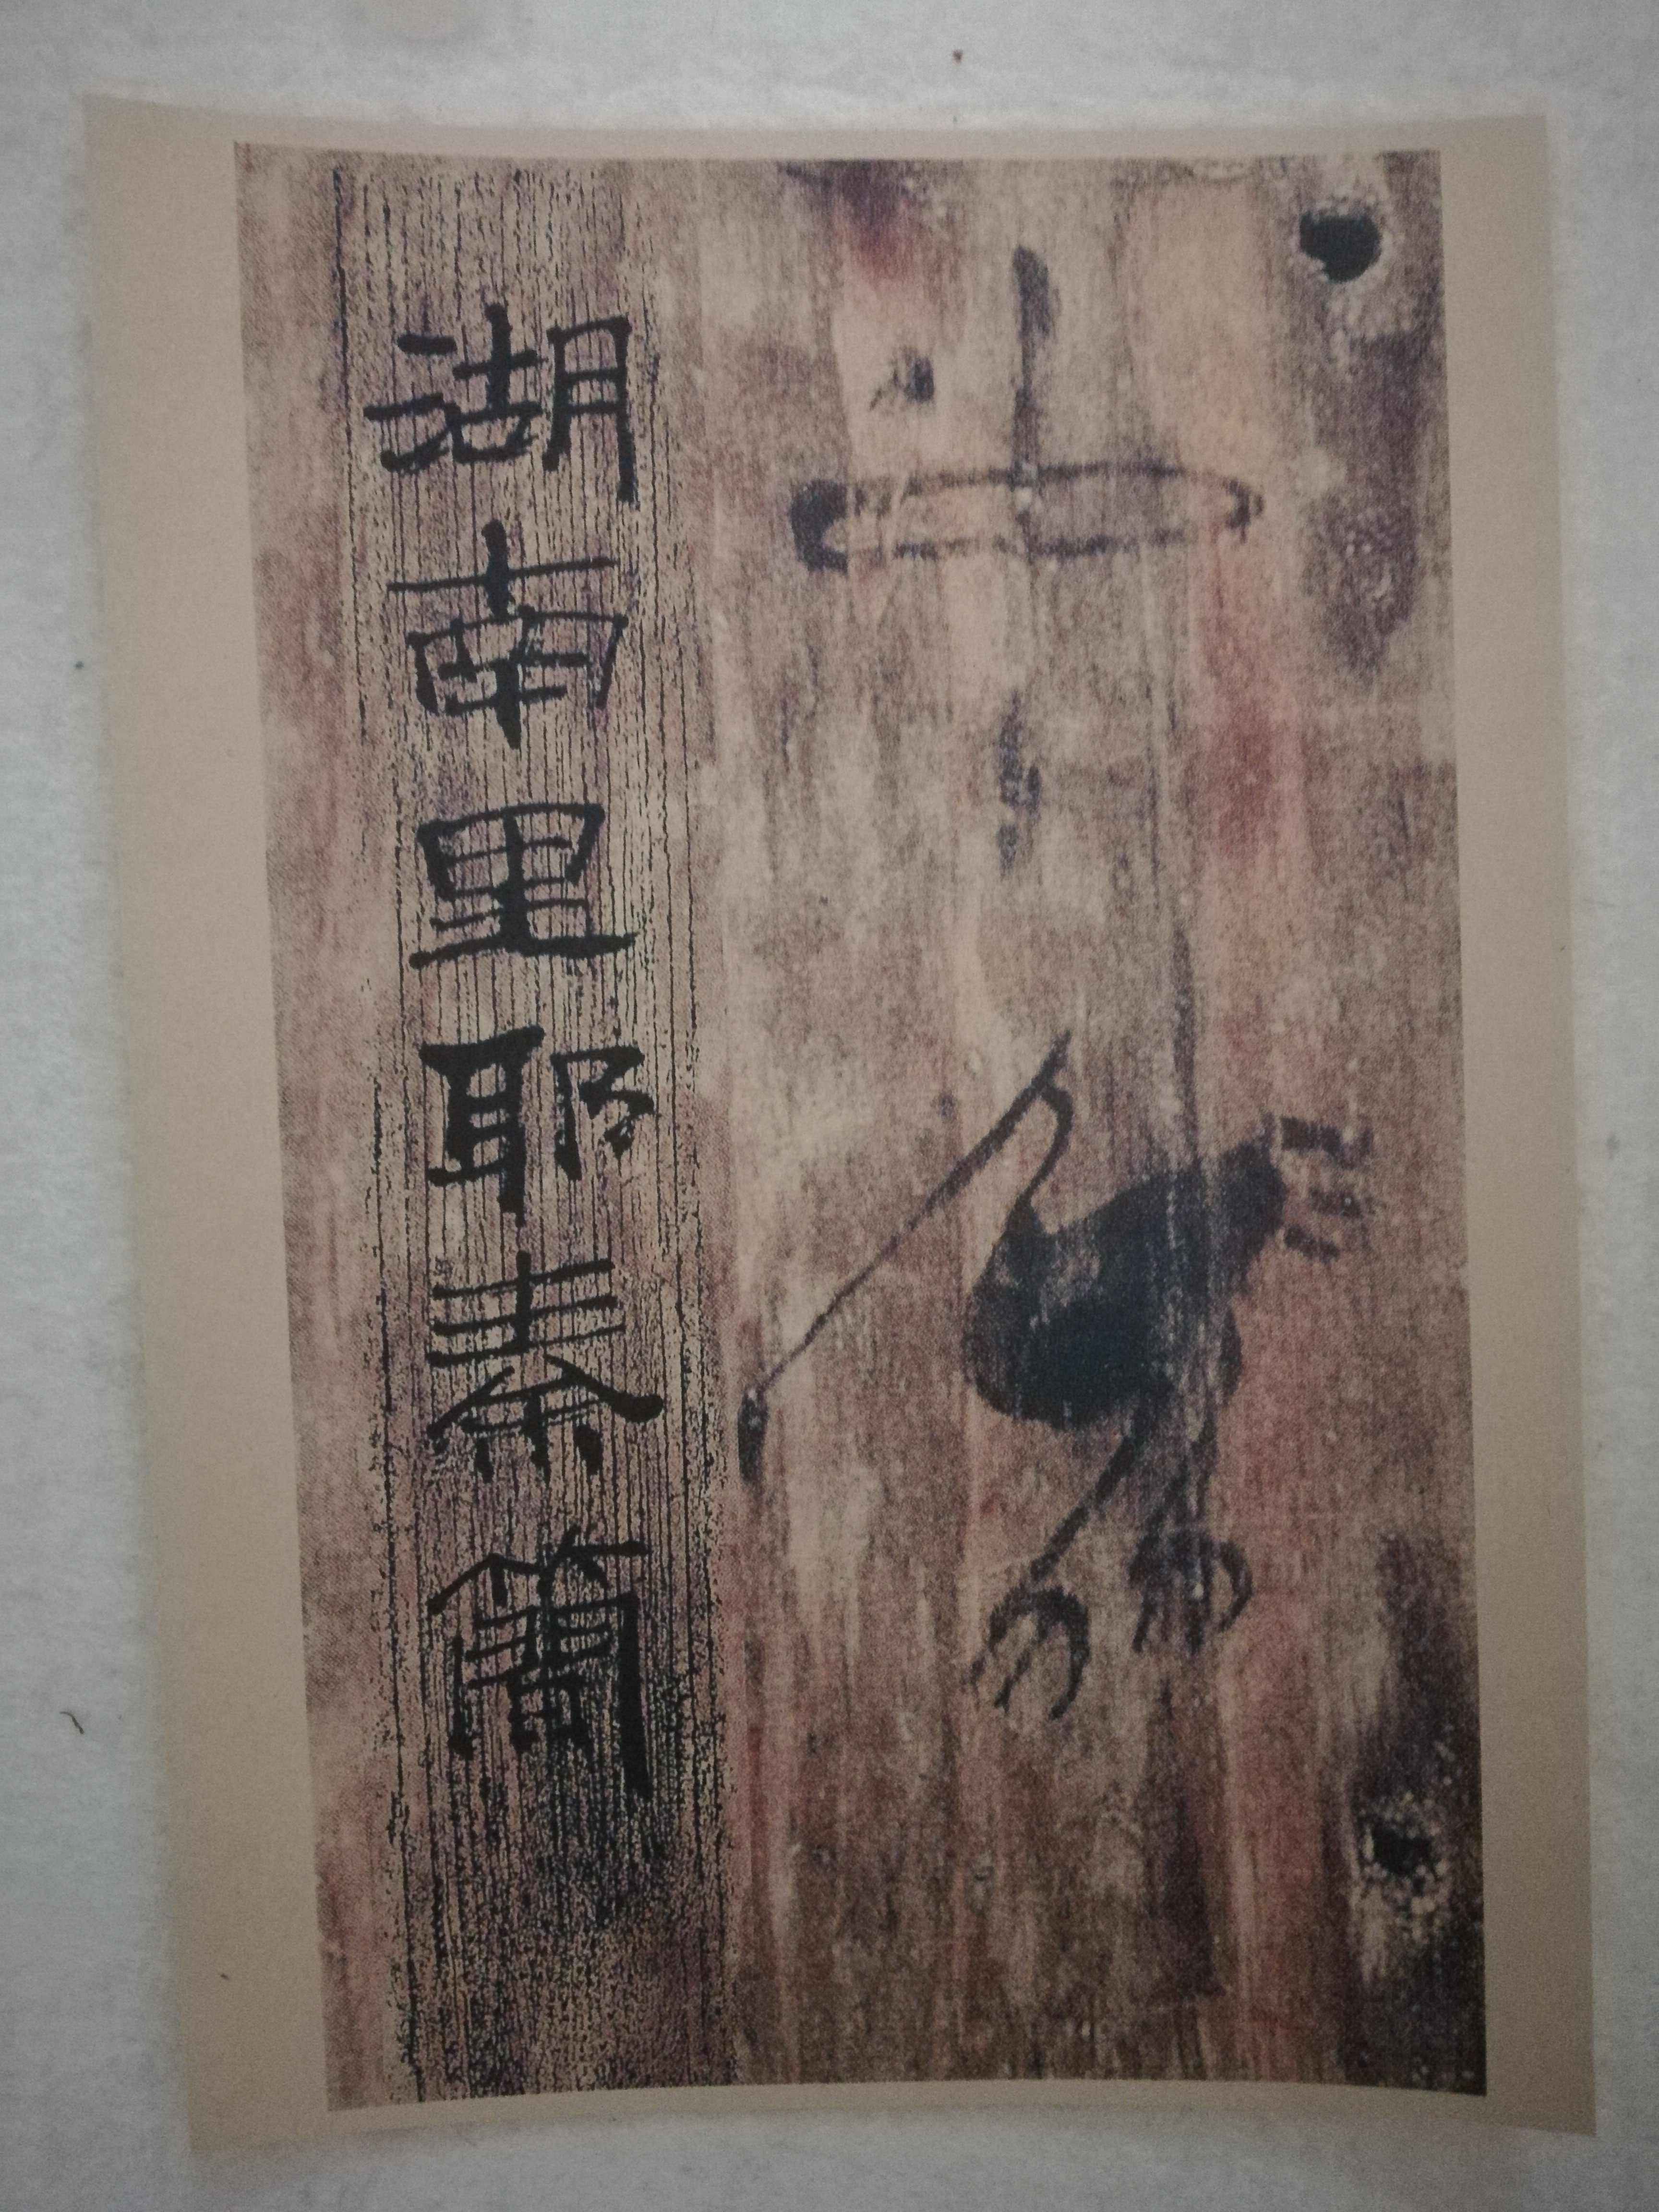 湖南里耶秦简